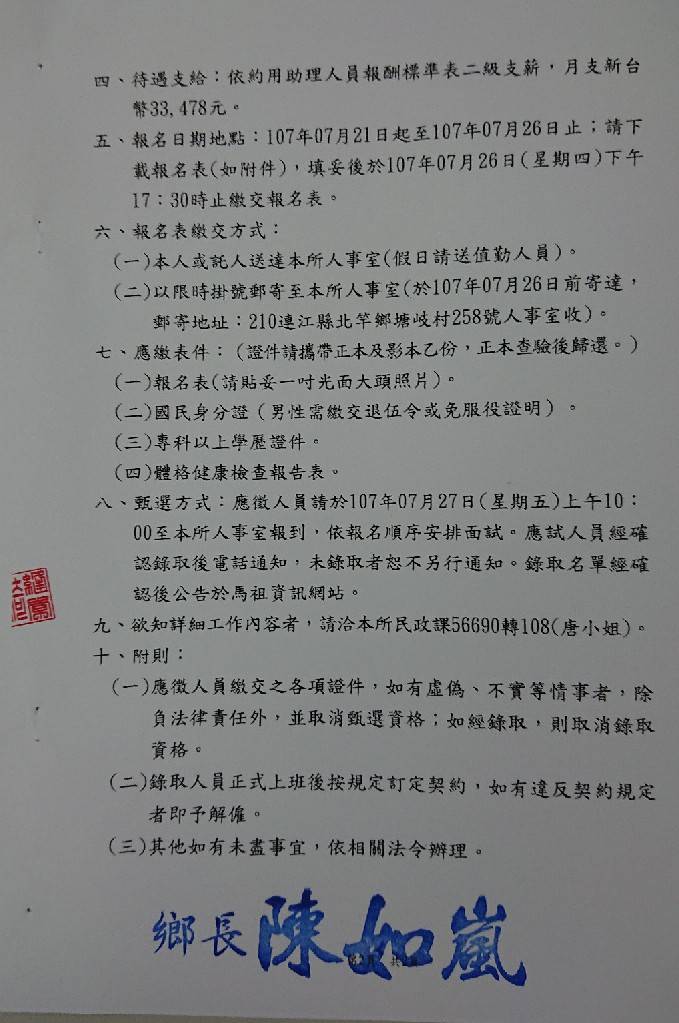 四、待遇支給：依約用助理人員報酬標準表二級支薪，月支新台
幣33,478元。
五、報名日期地點：107年07月21日起至107年07月26日止；請下
載報名表(如附件)，填妥後於107年07月26日(星期四)下午
17：30時止繳交報名表。
六、報名表繳交方式：
(一)本人或託人送達本所人事室(假日請送值勤人員)。
(二)以限時掛號郵寄至本所人事室(於107年07月26日前寄達，
郵寄地址：210連江縣北竿鄉塘岐村258號人事室收)。
七、應繳表件：（證件請攜帶正本及影本乙份，正本查驗後歸還。）
(一)報名表(請貼妥一吋光面大頭照片)。
(二)國民身分證（男性需繳交退伍令或免服役證明）。
(三)專科以上學歷證件。
(四)體格健康檢查報告表。
八、甄選方式：應徵人員請於107年07月27日(星期五)上午10：
00至本所人事室報到，依報名順序安排面試。應試人員經確
認錄取後電話通知，未錄取者恕不另行通知。錄取名單經確
認後公告於馬祖資訊網站。
九、欲知詳細工作內容者，請洽本所民政課56690轉108(唐小姐)。
十、附則：
(一)應徵人員繳交之各項證件，如有虛偽、不實等情事者，除
負法律責任外，並取消甄選資格；如經錄取，則取消錄取
資格。
(二)錄取人員正式上班後按規定訂定契約，如有違反契約規定
者即予解僱。
(三)其他如有未盡事宜，依相關法令辦理。
鄉長 陳如嵐